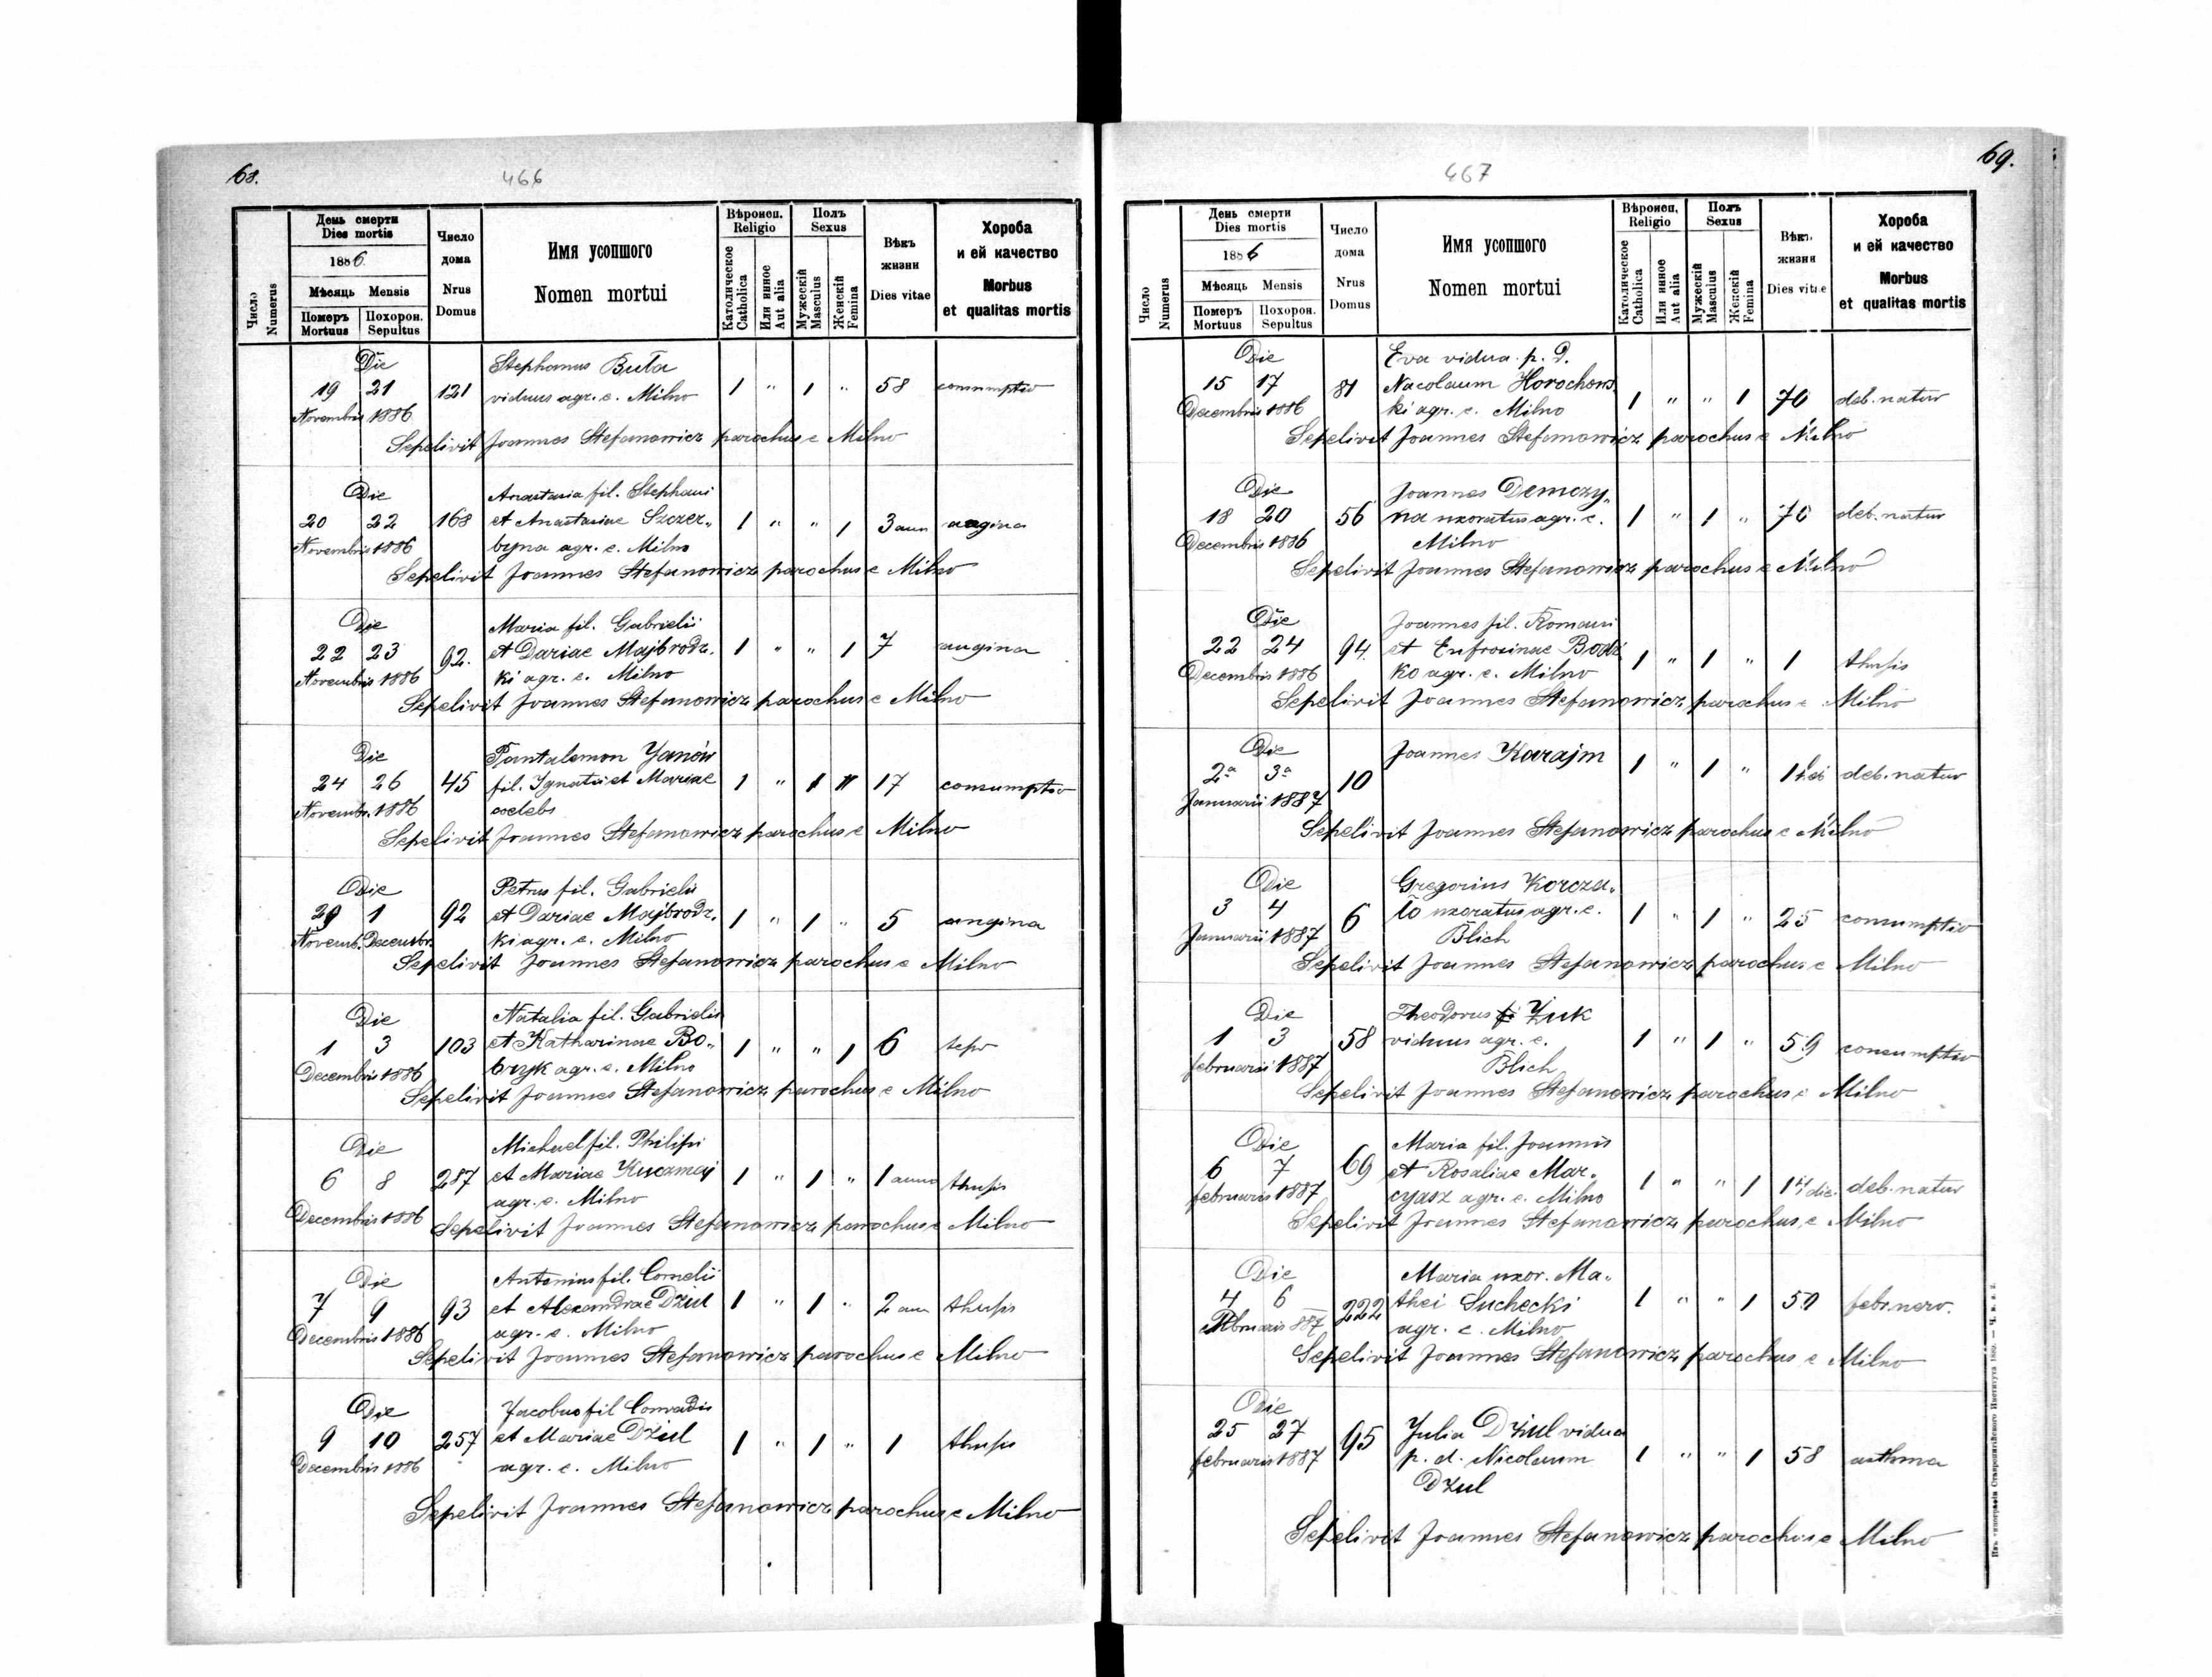 68.
466
Число
Numerus
День смерти
Dies mortis
1886.
Мѣсяць Mensis
Померъ
Mortuus
Похорон.
Sepultus
Число
дома
Nrus
Domus
Имя усопшого
Nomen mortui
Вѣроисп.
Religio
Католическое
Catholica
Или инное
Aut alia
Полъ
Sexus
Мужескій
Masculus
Женскій
Femina
Вѣкъ
жизни
Dies vitae
Хороба
и ей качество
Morbus
et qualitas mortis
Die
Stephanus Buta
19 21 121 viduus agr. e. Milno 1 " 1 " 58 consumptio
Novembris 1886
Sepelivit Joannes Stefanowicz parochus e Milno
Die
Anastasia fil. Stephani
20 22 168 et Anastasiae Szczer„ 1 " " 1 3 ann angina
Novembris 1886 byna agr. e. Milno
Sepelivit Joannes Stefanowicz parochus e Milno
Die
Maria fil. Gabrielii
22 23 92. et Dariae Majbrodz. 1 " " 1 7 angina
Novembris 1886 ki agr. e. Milno
Sepelivit Joannes Stefanowicz parochus e Milno
Die
Pantalemon Janów
24 26 45 fil. Ignatii et Mariae 1 " 1 17 consumptio
Novembr. 1886 coelebs
Sepelivit Joannes Stefanowicz parochus e Milno
Die
Petrus fil. Gabrielii
29 1 92 et Dariae Majbrodz. 1 " 1 " 5 angina
Novemb. Decembr. ki agr. e. Milno
Sepelivit Joannes Stefanowicz parochus e Milno
Die
Natalia fil. Gabrielis
1 3 103 et Katharinae Bo„ 1 " " 1 6
Decembris 1886 bryk agr. e. Milno
Sepelivit Joannes Stefanowicz parochus e Milno
Die
Michael fil. Philipi
6 8 287 et Mariae Kuczmaj 1 " 1 " 1 anno thusis
Decembris 1886 agr. e. Milno
Sepelivit Joannes Stefanowicz parochus e Milno
Die
Antonius fil. Cornelii
7 9 93 et Alexandrae Dziul 1 " 1 " 2 ann thusis
Decembris 1886 agr. e. Milno
Sepelivit Joannes Stefanowicz parochus e Milno
Die
Jacobus fil Conradis
9 10 257 et Mariae Dziul 1 " 1 " 1 thusis
Decembris 1886 agr. e. Milno
Sepelivit Joannes Stefanowicz parochus e Milno
69.
467
Число
Numerus
День смерти
Dies mortis
1886
Мѣсяць Mensis
Померъ
Mortuus
Похорон.
Sepultus
Число
дома
Nrus
Domus
Имя усопшого
Nomen mortui
Вѣроисп.
Religio
Католическое
Catholica
Или инное
Aut alia
Полъ
Sexus
Мужескій
Masculus
Женскій
Femina
Вѣкъ
жизни
Dies vitae
Хороба
и ей качество
Morbus
et qualitas mortis
Die
Eva vidua p. D.
15 17 81 Nacolaum Horochows
Decembris 1886 ki agr. e. Milno 1 " " 1 70 deb. natur
Sepelivit Joannes Stefanowicz parochus e Milno
Die
Joannes Demczy„
18 20 56 na uxoratus agr. e. 1 " 1 " 70 deb. natur
Decembris 1886 Milno
Sepelivit Joannes Stefanowicz parochus e Milno
Die
Joannes fil. Romani
22 24 94. et Eufrosinae Bodz 1 " 1 " 1 thusis
Decembris 1886 ko agr. e. Milno
Sepelivit Joannes Stefanowicz parochus e Milno
Die
Joannes Karajm 1 " 1 " deb. natur
2a 3a 10
Januarii 1887
Sepelivit Joannes Stefanowicz parochus e Milno
Die
Gregorius Korcza„
3 4 6 ło uxoratus agr. e. 1 " 1 " 25 consumptio
Januarii 1887 Blich
Sepelivit Joannes Stefanowicz parochus e Milno
Die
Theodorus Żuk
1 3 58 viduus agr. e. 1 " 1 " 59 consumptio
februarii 1887 Blich
Sepelivit Joannes Stefanowicz parochus e Milno
Die
Maria fil. Joannis
6 7 69 et Rosaliae Mar„
februaris 1887 cyasz agr. e. Milno 1 " " 1 14 die. deb. natur
Sepelivit Joannes Stefanowicz parochus e Milno
Die
Maria uxor. Ma„
4 6 222 thei Suchecki 1 " " 1 50 febr. nerv.
Februaris 887 agr. e. Milno
Sepelivit Joannes Stefanowicz parochus e Milno
Die
25 27 95 Julia Dziul vidua
februaris 1887 p. d. Nicolaum 1 " " 1 58 asthma
Dzul
Sepelivit Joannes Stefanowicz parochus e Milno